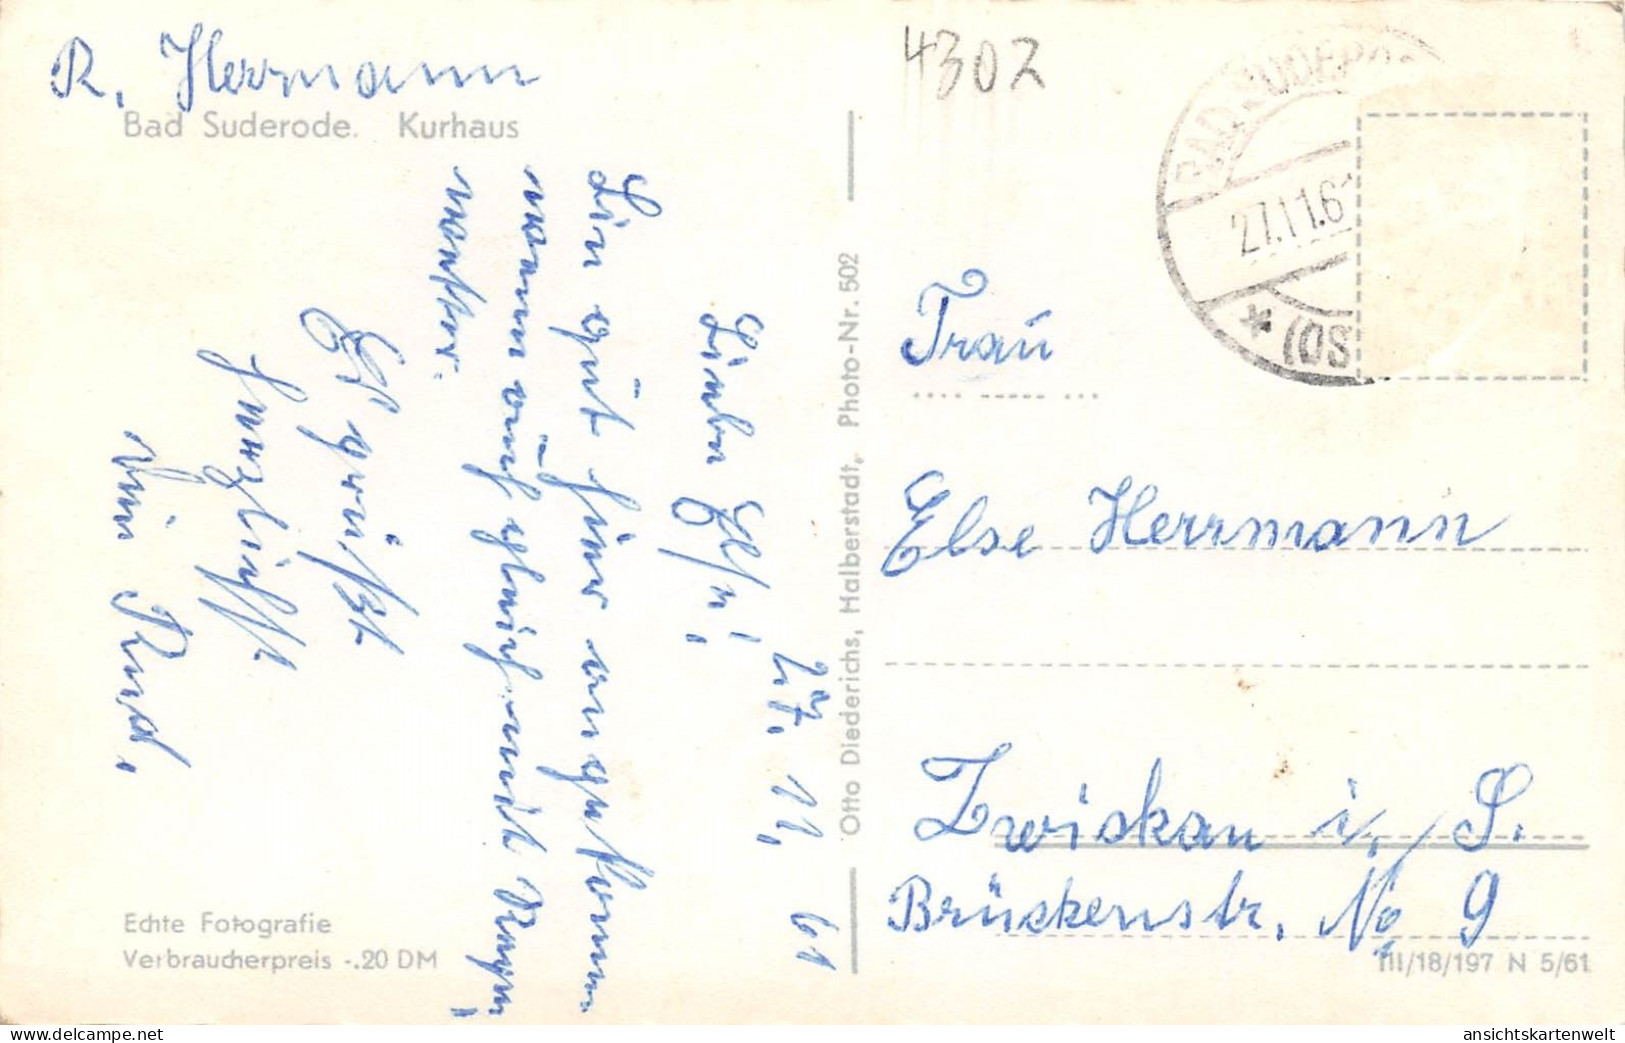 R. Herrmann
Bad Suderode. Kurhaus
27. 11. 61
Liebe Else!
Bin gut hier angekommen
wenn auch gleich mit Regen,
wetter.
Es grüßt
herzlichst
Dein Rud.
Echte Fotografie
Verbraucherpreis -.20 DM
Otto Diederichs, Halberstadt, Photo-Nr. 502
4302
BAD SUDERODE
27.11.61
* (OS)
Frau
Else Herrmann
Zwickau i. S.
Brückenstr. No 9
III/18/197 N 5/61
www.delcampe.net
ansichtskartenwelt